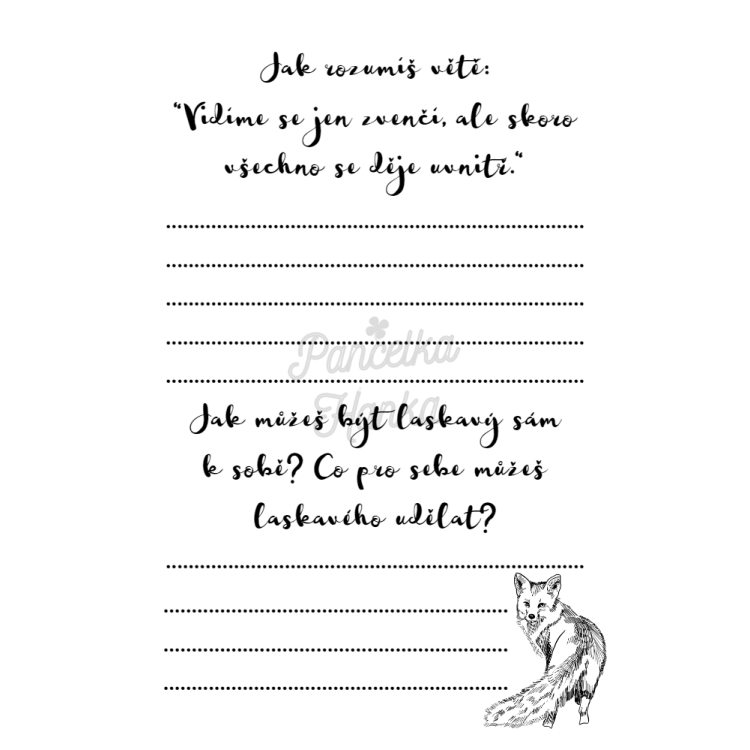 Jak rozumíš větě:
"Vidíme se jen zvenčí, ale skoro
všechno se děje uvnitř."
Pančelka
Hanka
Jak můžeš být laskavý sám
k sobě? Co pro sebe můžeš
laskavého udělat?